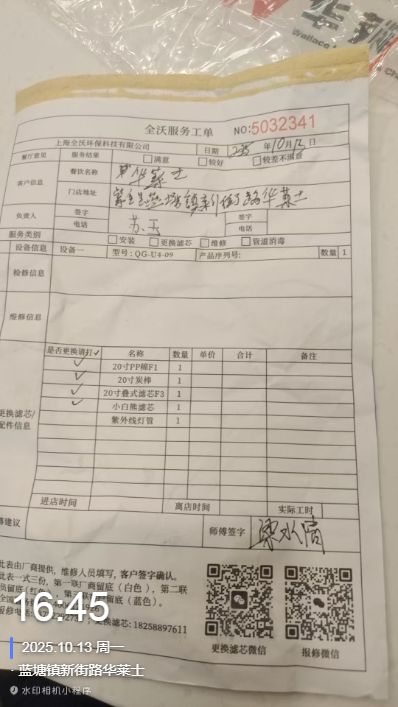 华莱
Wallace
全沃服务工单
NO:5032341
上海全沃环保科技有限公司 日期 2025 年10月12日
餐厅意见 服务结果 满意 较好 较差不满意
客户信息 餐饮名称 华莱士
门店地址 紫金县蓝塘镇新街路华莱士
负责人 签字 苏玉 签字
电话 电话
服务类别 安装 更换滤芯 维修 管道消毒
设备信息 设备一 型号:QG-U4-09 产品序列号: 数量 1
检修信息
维修信息
是否更换请打✓ 名称 数量 单价 合计 备注
✓ 20寸PP棉F1 1
✓ 20寸炭棒 1
✓ 20寸叠式滤芯F3 1
✓ 小白熊滤芯 1
紫外线灯管 1
更换滤芯/
配件信息
进店时间 离店时间 实际工时
建议 师傅签字
此表由厂商提供，维修人员填写，客户签字确认。
此表一式三份，第一联厂商留底（白色），第二联
留底（蓝色）。
更换滤芯：18258897611
更换滤芯微信 报修微信
16:45
2025.10.13 周一
蓝塘镇新街路华莱士
水印相机小程序